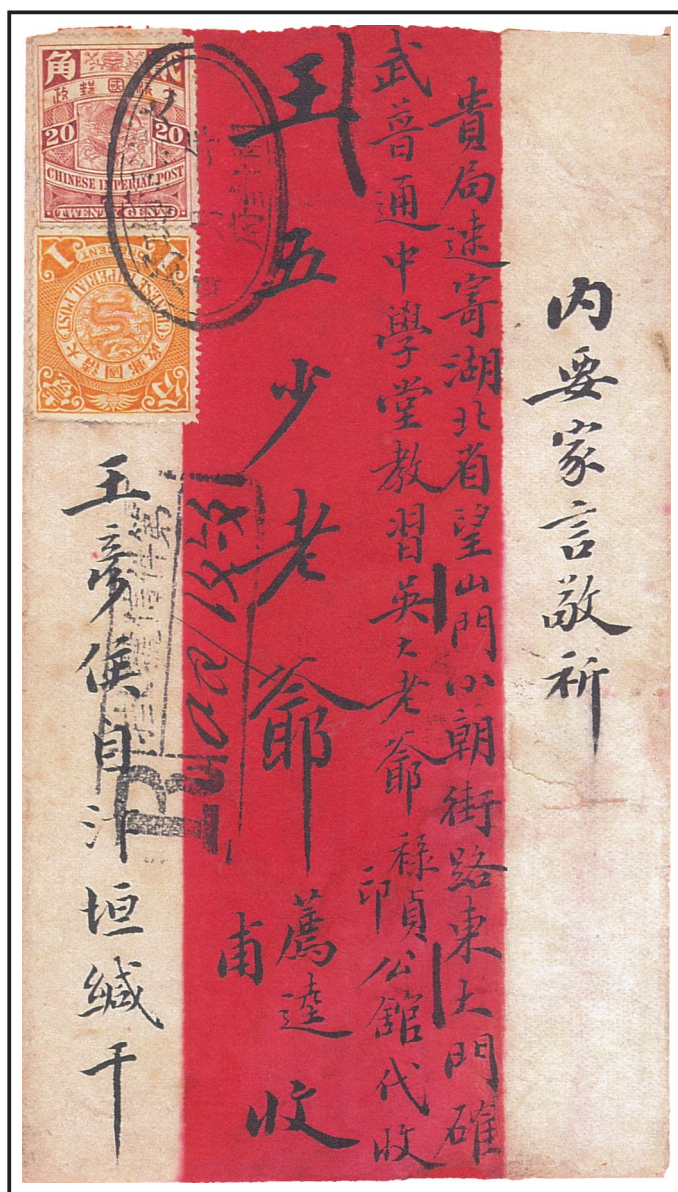 内要家言敬祈
貴局速寄湖北省望山門小朝街路東大門確
武普通中學堂教習英大老爺祿貞公舘代收
印
王五少老爺
薦逵
甫
收
王彥侯自汴垣缄干
貳角
大清國郵政
20 20
CHINESE IMPERIAL POST
TWENTY CENTS
1
CHINESE IMPERIAL POST
大清國郵政